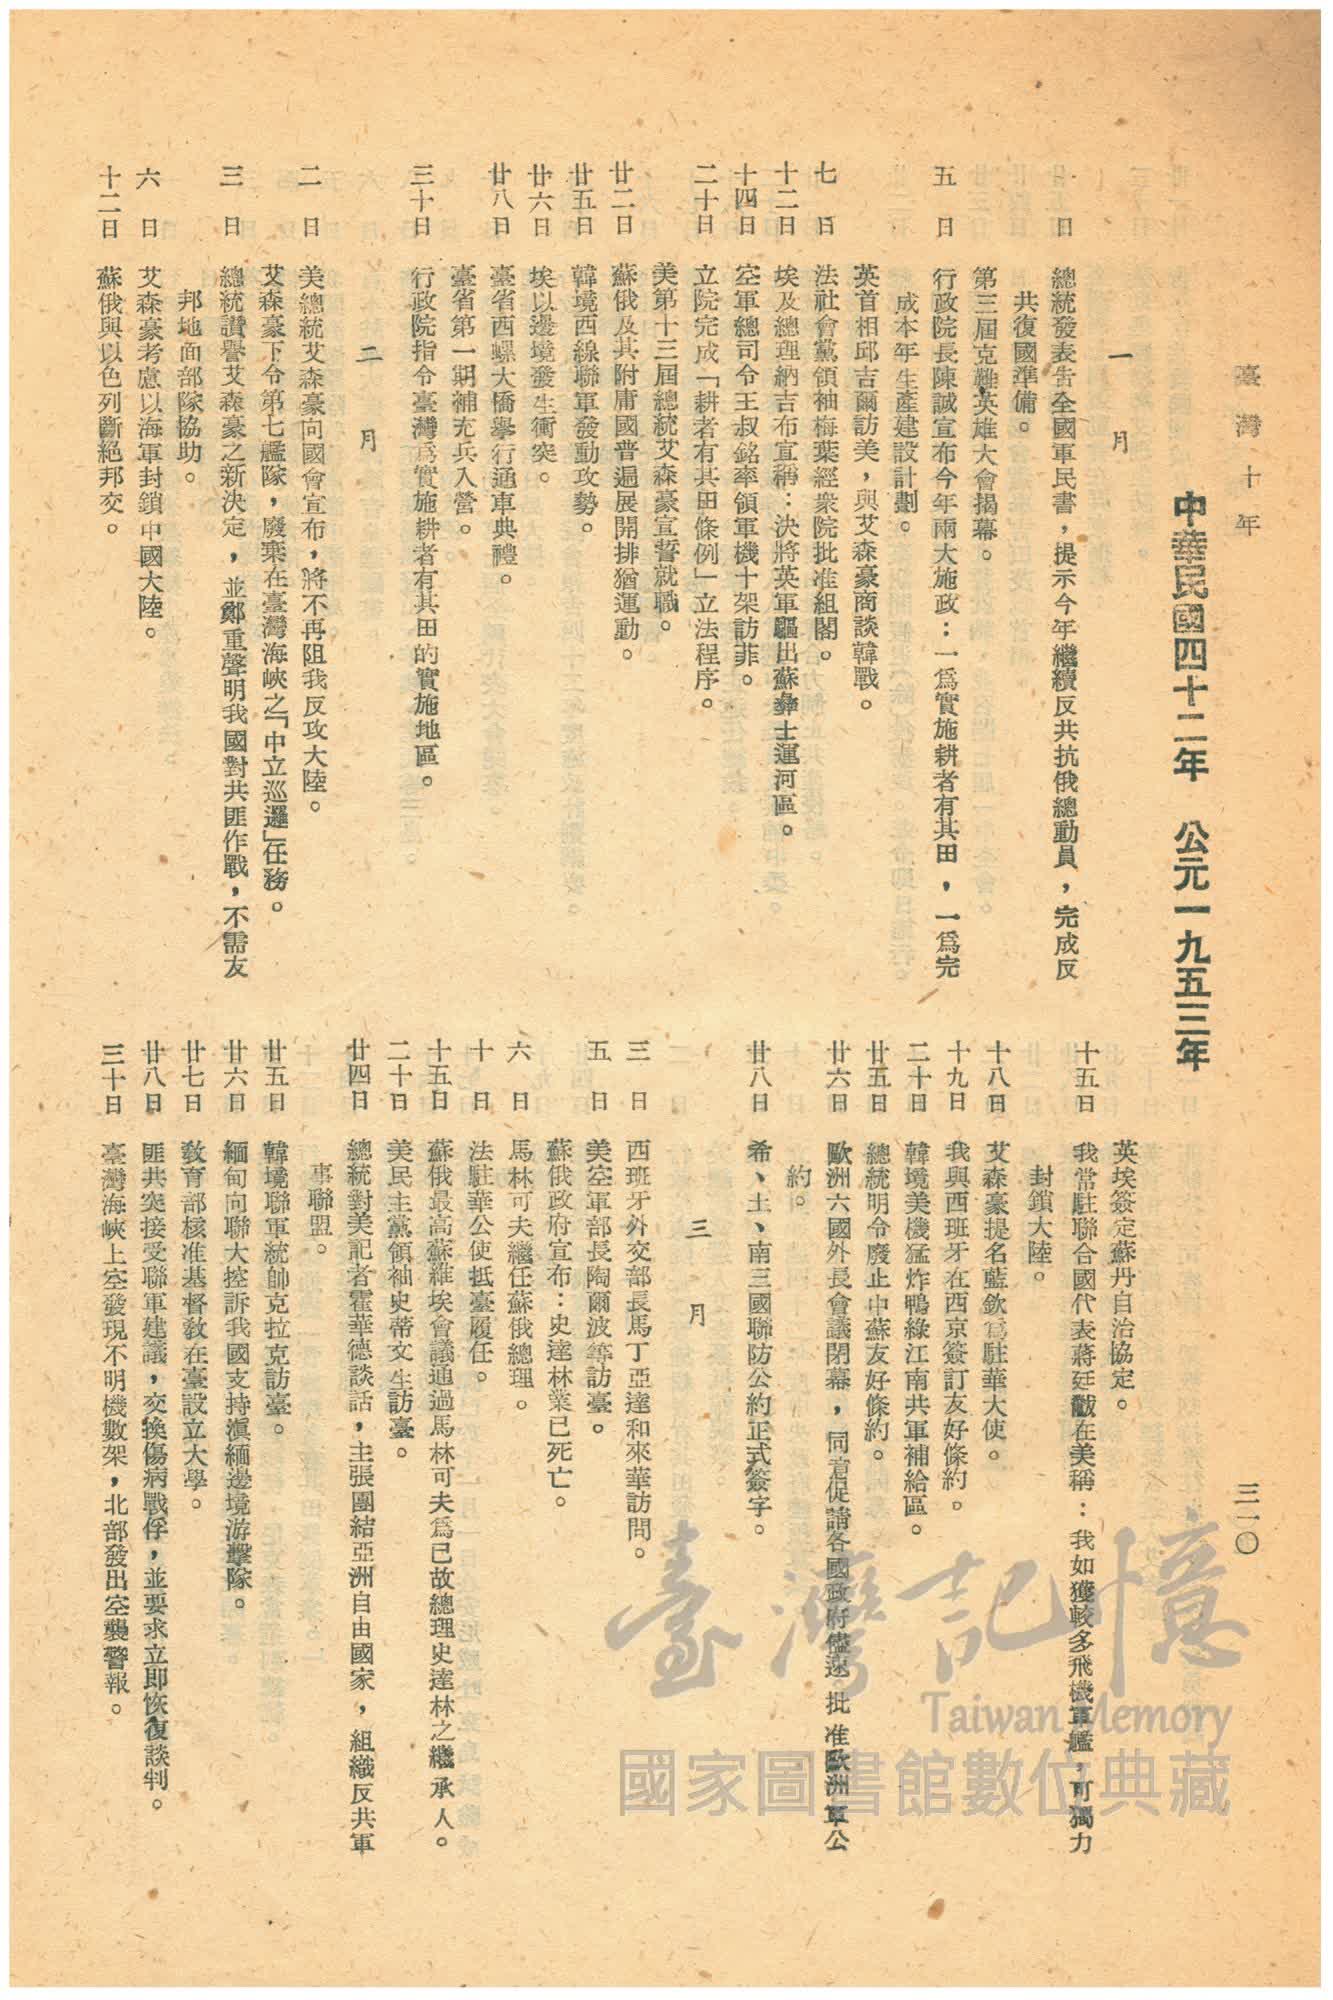 臺灣十年
三一〇
中華民國四十二年　公元一九五三年
一月
一日　總統發表告全國軍民書，提示今年繼續反共抗俄總動員，完成反
共復國準備。
第三屆克難英雄大會揭幕。
五日　行政院長陳誠宣布今年兩大施政：一為實施耕者有其田，一為完
成本年生產建設計劃。
英首相邱吉爾訪美，與艾森豪商談韓戰。
七日　法社會黨領袖梅葉經衆院批准組閣。
十二日　埃及總理納吉布宣稱：決將英軍驅出蘇彝士運河區。
十四日　空軍總司令王叔銘率領軍機十架訪菲。
二十日　立院完成「耕者有其田條例」立法程序。
美第十三屆總統艾森豪宣誓就職。
廿二日　蘇俄及其附庸國普遍展開排猶運動。
廿五日　韓境西線聯軍發動攻勢。
廿六日　埃以邊境發生衝突。
廿八日　臺省西螺大橋舉行通車典禮。
臺省第一期補充兵入營。
三十日　行政院指令臺灣為實施耕者有其田的實施地區。
二月
二日　美總統艾森豪向國會宣布，將不再阻我反攻大陸。
艾森豪下令第七艦隊，廢棄在臺灣海峽之「中立巡邏」任務。
三日　總統讚譽艾森豪之新決定，並鄭重聲明我國對共匪作戰，不需友
邦地面部隊協助。
六日　艾森豪考慮以海軍封鎖中國大陸。
十二日　蘇俄與以色列斷絕邦交。
英埃簽定蘇丹自治協定。
十五日　我常駐聯合國代表蔣廷黻在美稱：我如獲較多飛機軍艦，可獨力
封鎖大陸。
十八日　艾森豪提名藍欽為駐華大使。
十九日　我與西班牙在西京簽訂友好條約。
二十日　韓境美機猛炸鴨綠江南共軍補給區。
廿五日　總統明令廢止中蘇友好條約。
廿六日　歐洲六國外長會議閉幕，同意促請各國政府儘速批准歐洲軍公
約。
廿八日　希、土、南三國聯防公約正式簽字。
三月
三日　西班牙外交部長馬丁亞達和來華訪問。
五日　美空軍部長陶爾波等訪臺。
蘇俄政府宣布：史達林業已死亡。
六日　馬林可夫繼任蘇俄總理。
十日　法駐華公使抵臺履任。
十五日　蘇俄最高蘇維埃會議通過馬林可夫為已故總理史達林之繼承人。
二十日　美民主黨領袖史蒂文生訪臺。
廿四日　總統對美記者霍華德談話，主張團結亞洲自由國家，組織反共軍
事聯盟。
廿五日　韓境聯軍統帥克拉克訪臺。
廿六日　緬甸向聯大控訴我國支持滇緬邊境游擊隊。
廿七日　教育部核准基督教在臺設立大學。
廿八日　匪共突接受聯軍建議，交換傷病戰俘，並要求立即恢復談判。
三十日　臺灣海峽上空發現不明機數架，北部發出空襲警報。
臺灣記憶
Taiwan Memory
國家圖書館數位典藏